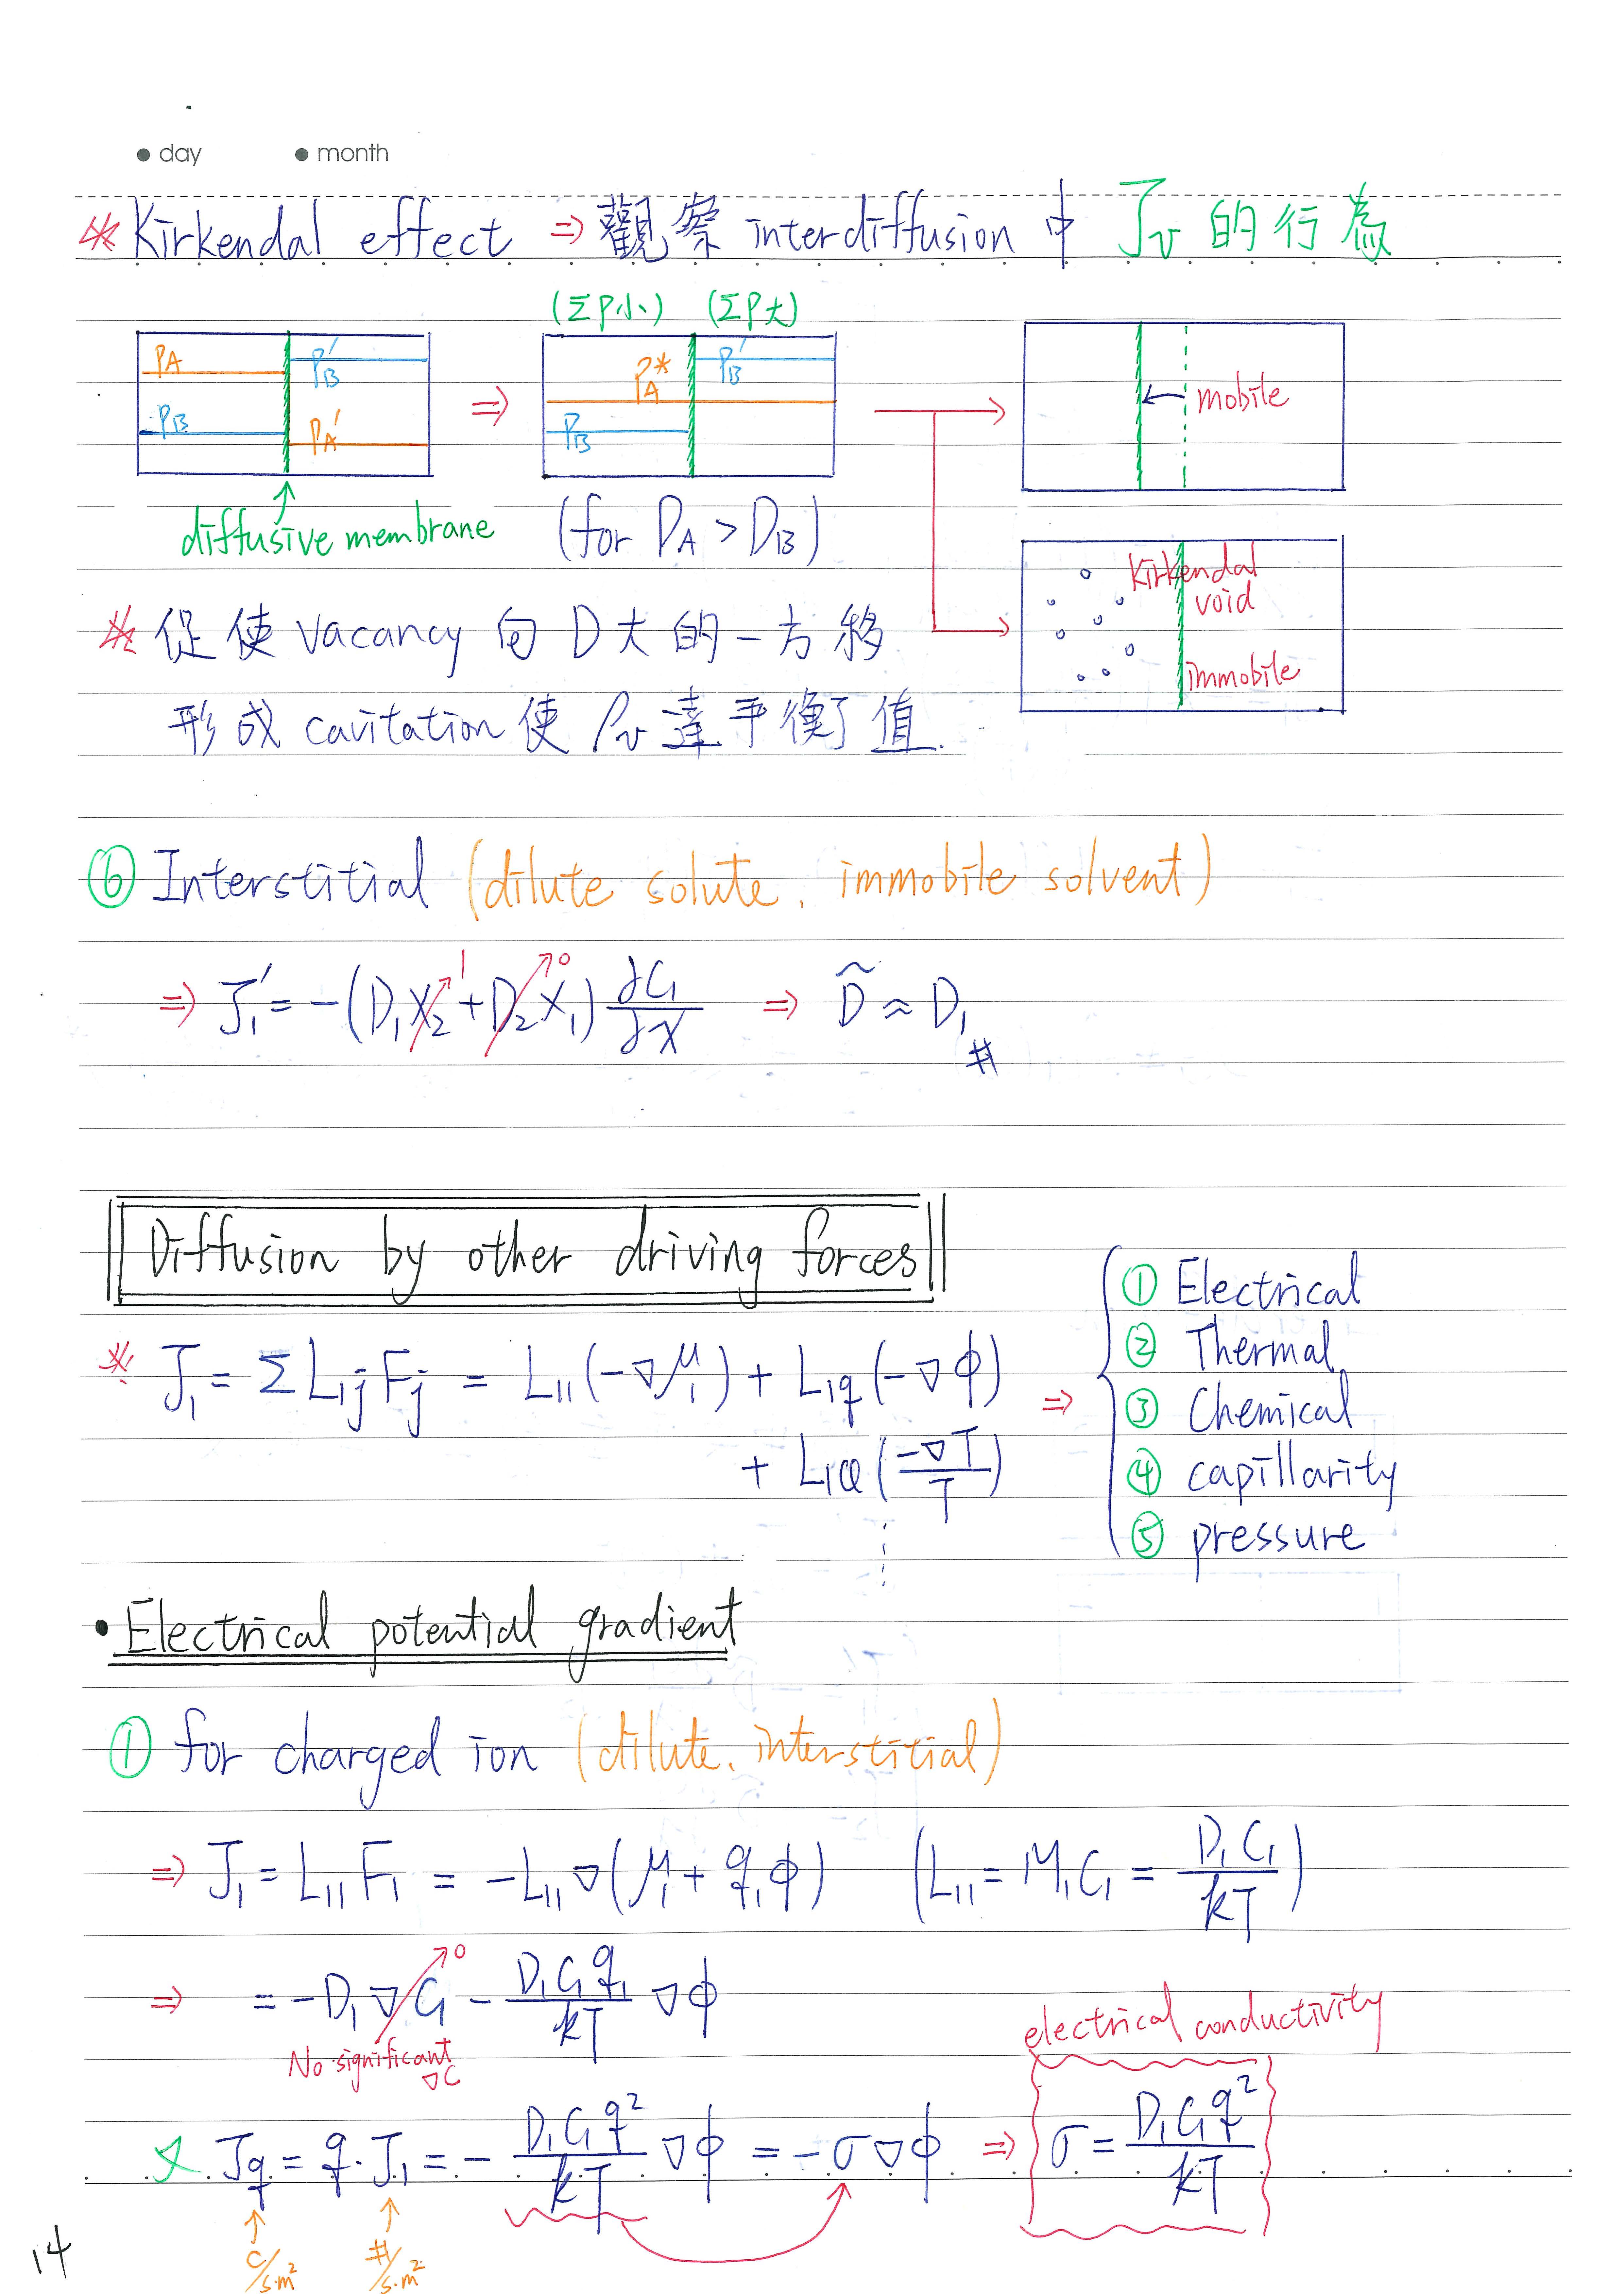 ● day ● month
※ Kirkendal effect ⇒ 觀察 interdiffusion 中 Jv 的行為
(ΣP小) (ΣP大)
PA PB' PA* PB' mobile
PB PA' PB
diffusive membrane (for DA > DB)
Kirkendal void
immobile
※ 促使 vacancy 向 D大的一方移
形成 cavitation 使 ρv 達平衡值.
⑥ Interstitial (dilute solute, immobile solvent)
⇒ J₁' = -(D₁X₂ + D₂X₁) ∂C₁/∂X ⇒ D̃ ≈ D₁ #
1 0
Diffusion by other driving forces
※ J₁ = Σ L₁ⱼ Fⱼ = L₁₁(-∇μ₁) + L₁q(-∇φ)
+ L₁Q(-∇T/T)
⇒
① Electrical
② Thermal
③ Chemical
④ capillarity
⑤ pressure
• Electrical potential gradient
① for charged ion (dilute, interstitial)
⇒ J₁ = L₁₁ F₁ = -L₁₁∇(μ₁ + q₁φ) (L₁₁ = M₁C₁ = D₁C₁/kT)
⇒ = -D₁∇C₁ - D₁C₁q₁/kT ∇φ
0
No significant ∇C
electrical conductivity
又 Jq = q · J₁ = - D₁C₁q²/kT ∇φ = -σ∇φ ⇒ σ = D₁C₁q²/kT
C/s·m² #/s·m²
14